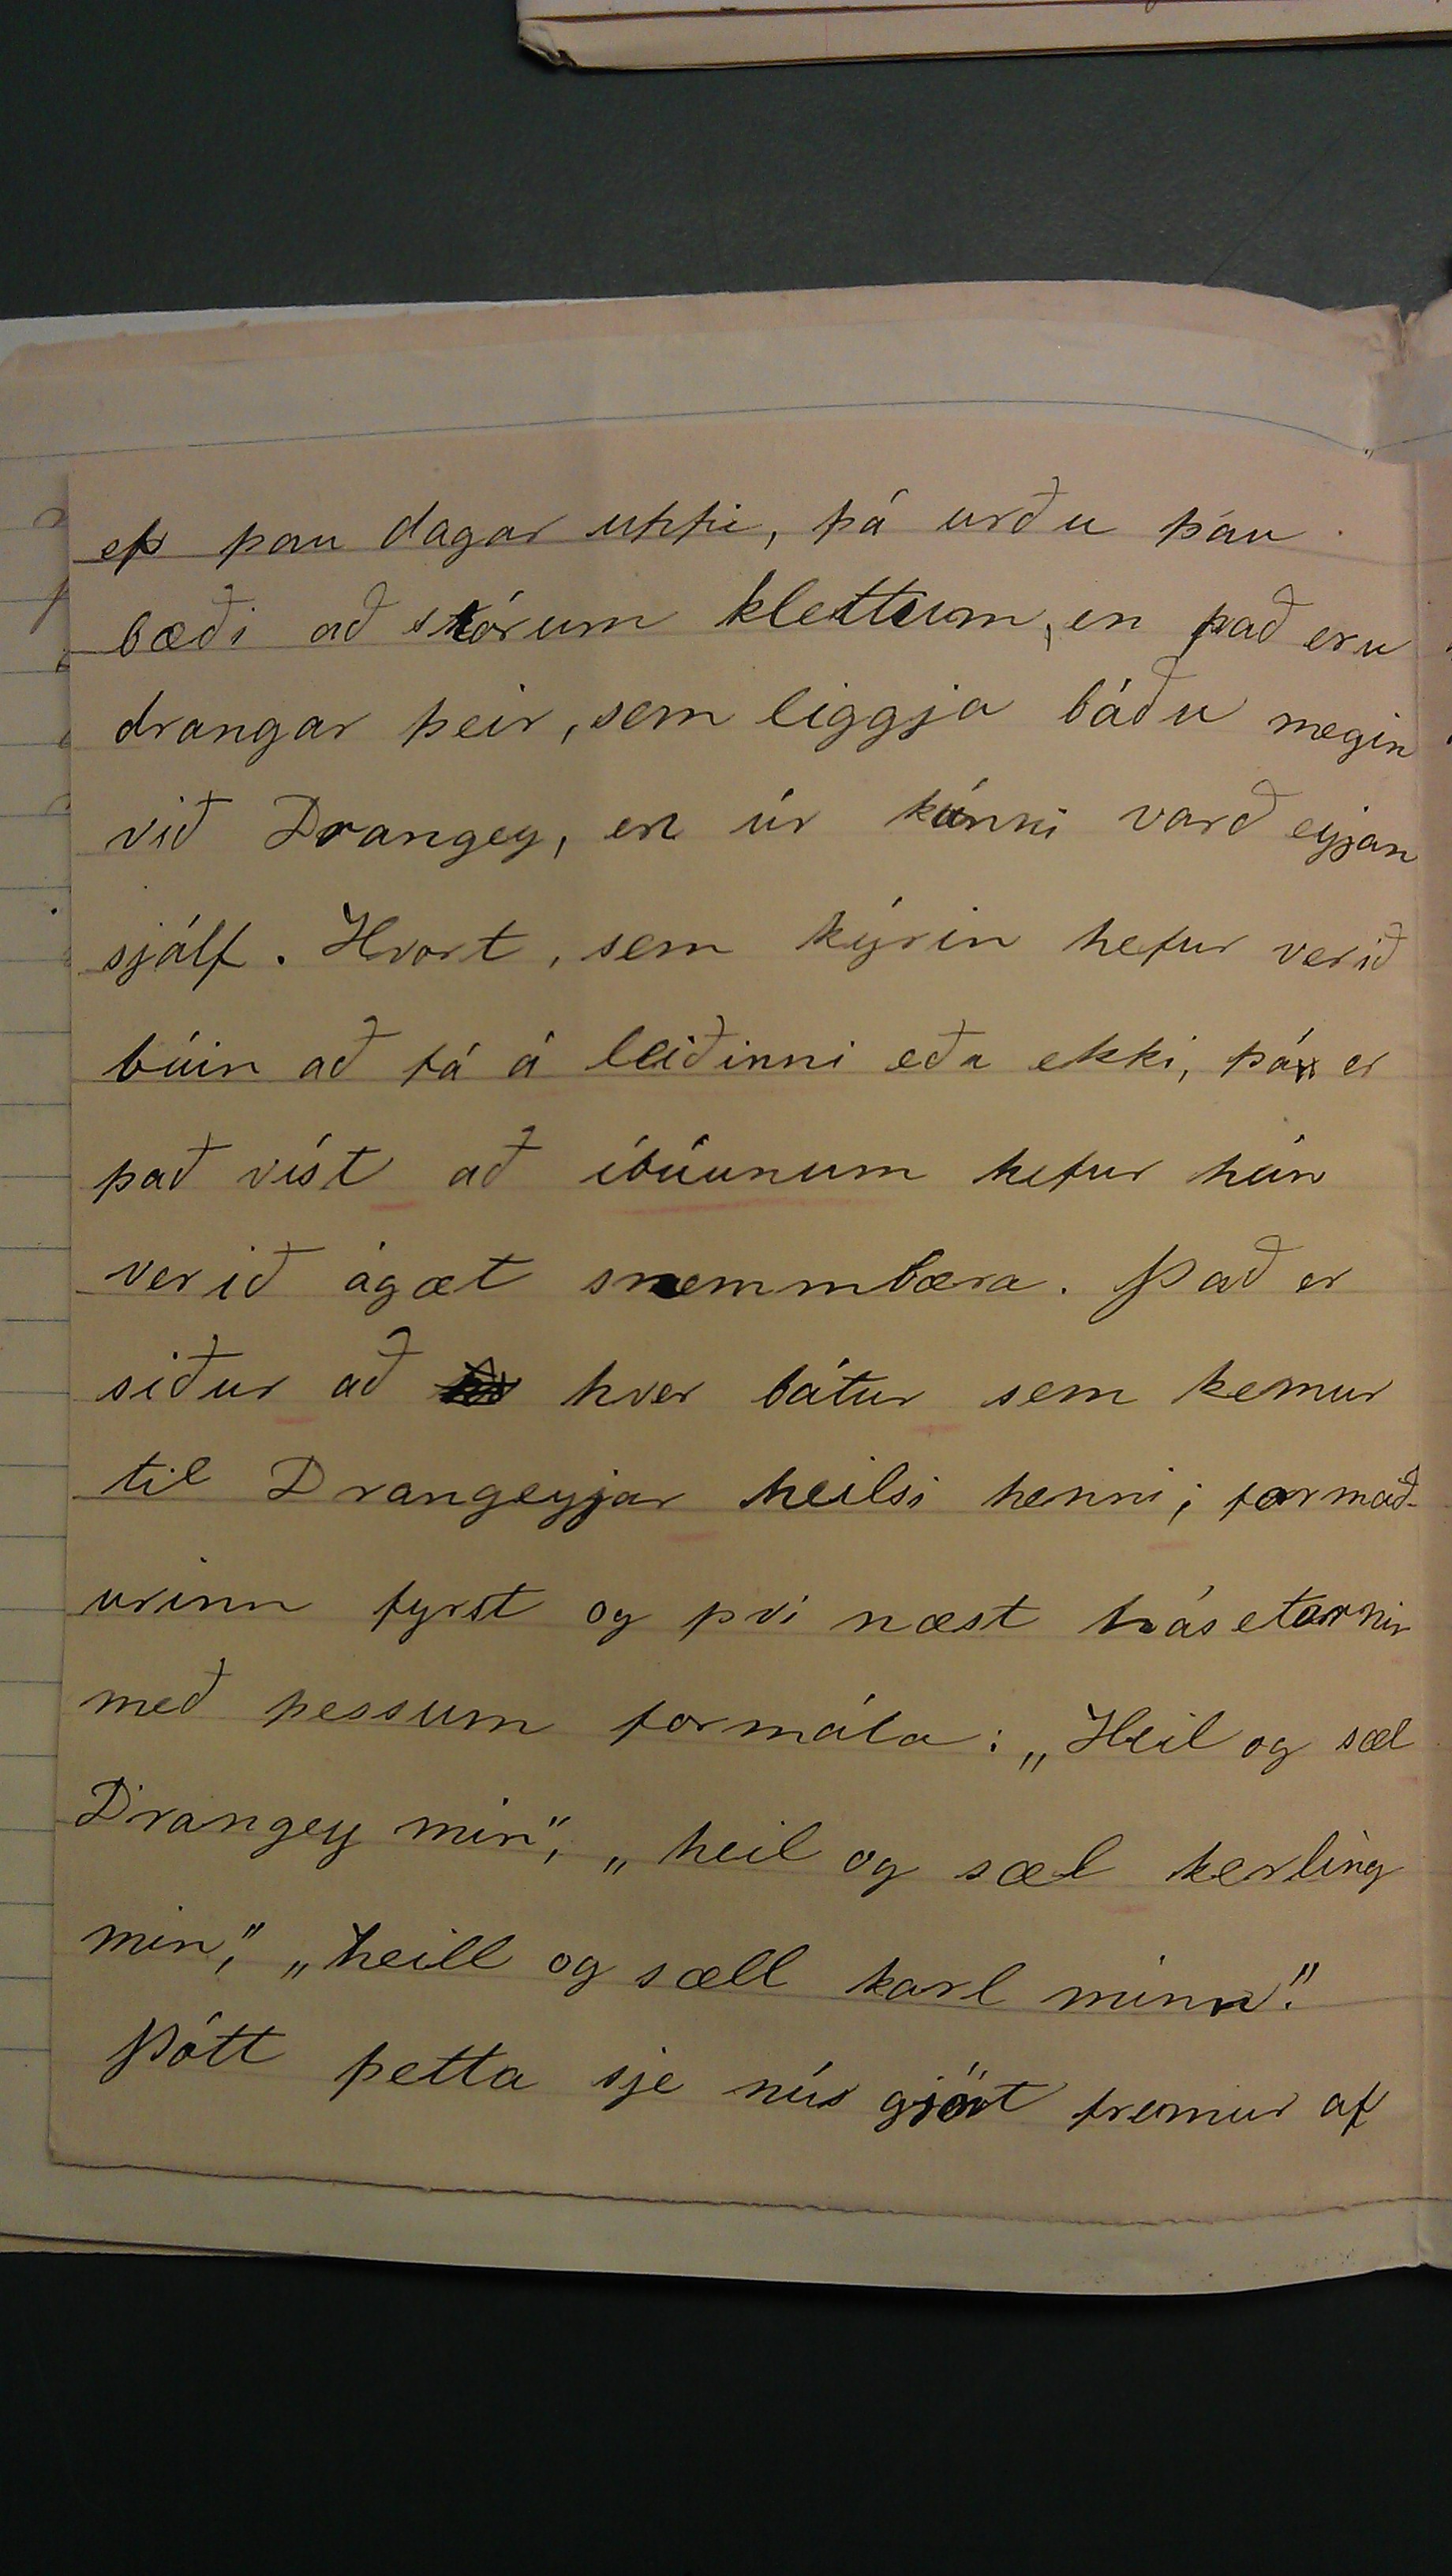 ef þau dagar uppi, þá urðu þau
bæði að stórum klettum, en það eru
drangar þeir, sem liggja báðu megin
við Drangey, en úr kúnni varð eyjan
sjálf. Hvort, sem kýrin hefur verið
búin að fá á leiðinni eða ekki, þá er
það víst að íbúunum hefur hún
verið ágæt snemmbæra. Það er
siður að hver bátur sem kemur
til Drangeyjar heilsi henni; formað-
urinn fyrst og því næst hásetarnir
með þessum formála: „Heil og sæl
Drangey mín“, „heil og sæl kerling
mín“, „heill og sæll karl minn“.
Þótt þetta sje nú gjört fremur af